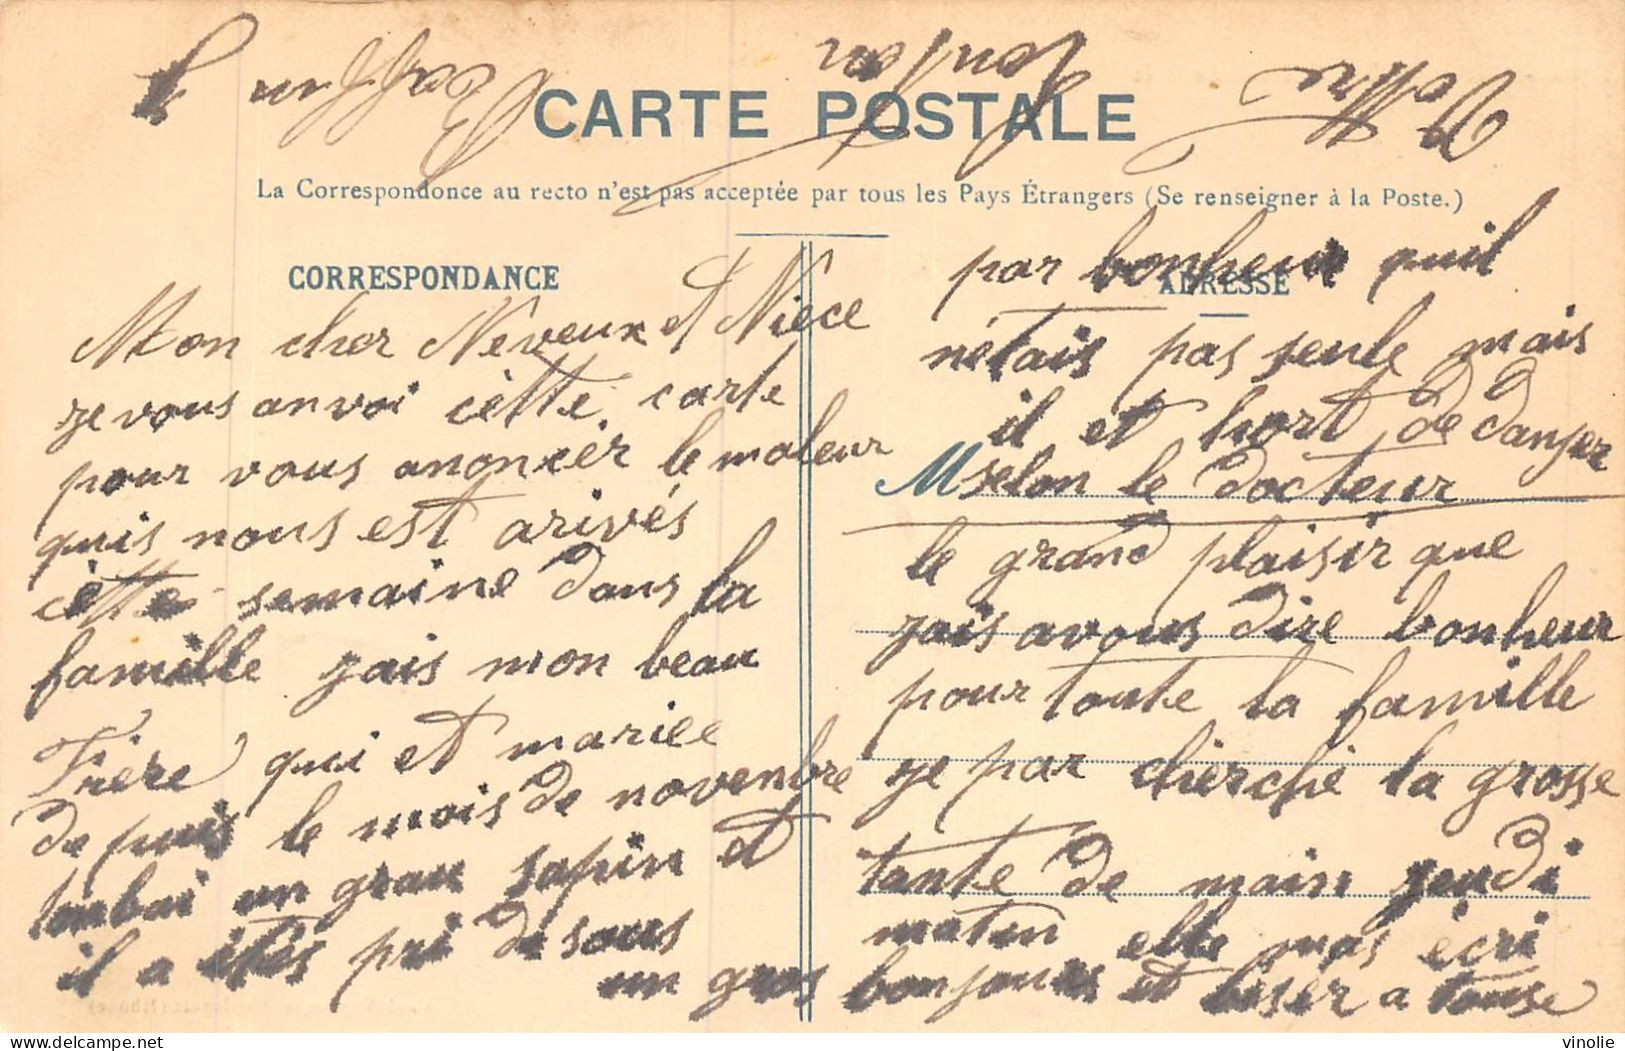 CARTE POSTALE
La Correspondance au recto n'est pas acceptée par tous les Pays Étrangers (Se renseigner à la Poste.)
CORRESPONDANCE
Mon cher Néveux et Nièce
je vous anvoi cètte carte
pour vous anoncér le maleur
quis nous est arivés
cètte semaine dans la
famille jais mon beau
Frère qui et mariee
depuis le mois de novenbre
tonbai un gran sapin et
il a ités pri desous
ADRESSE
par bonheur quil
nétais pas seule mais
il et hort de danger
M selon le docteur
le grand plaisir que
jais avous dire bonheur
pour toute la famille
je par cherche la grosse
tante de main jeudi
maten elle mas écri
un gros bonjours et béser a touse
vinolie